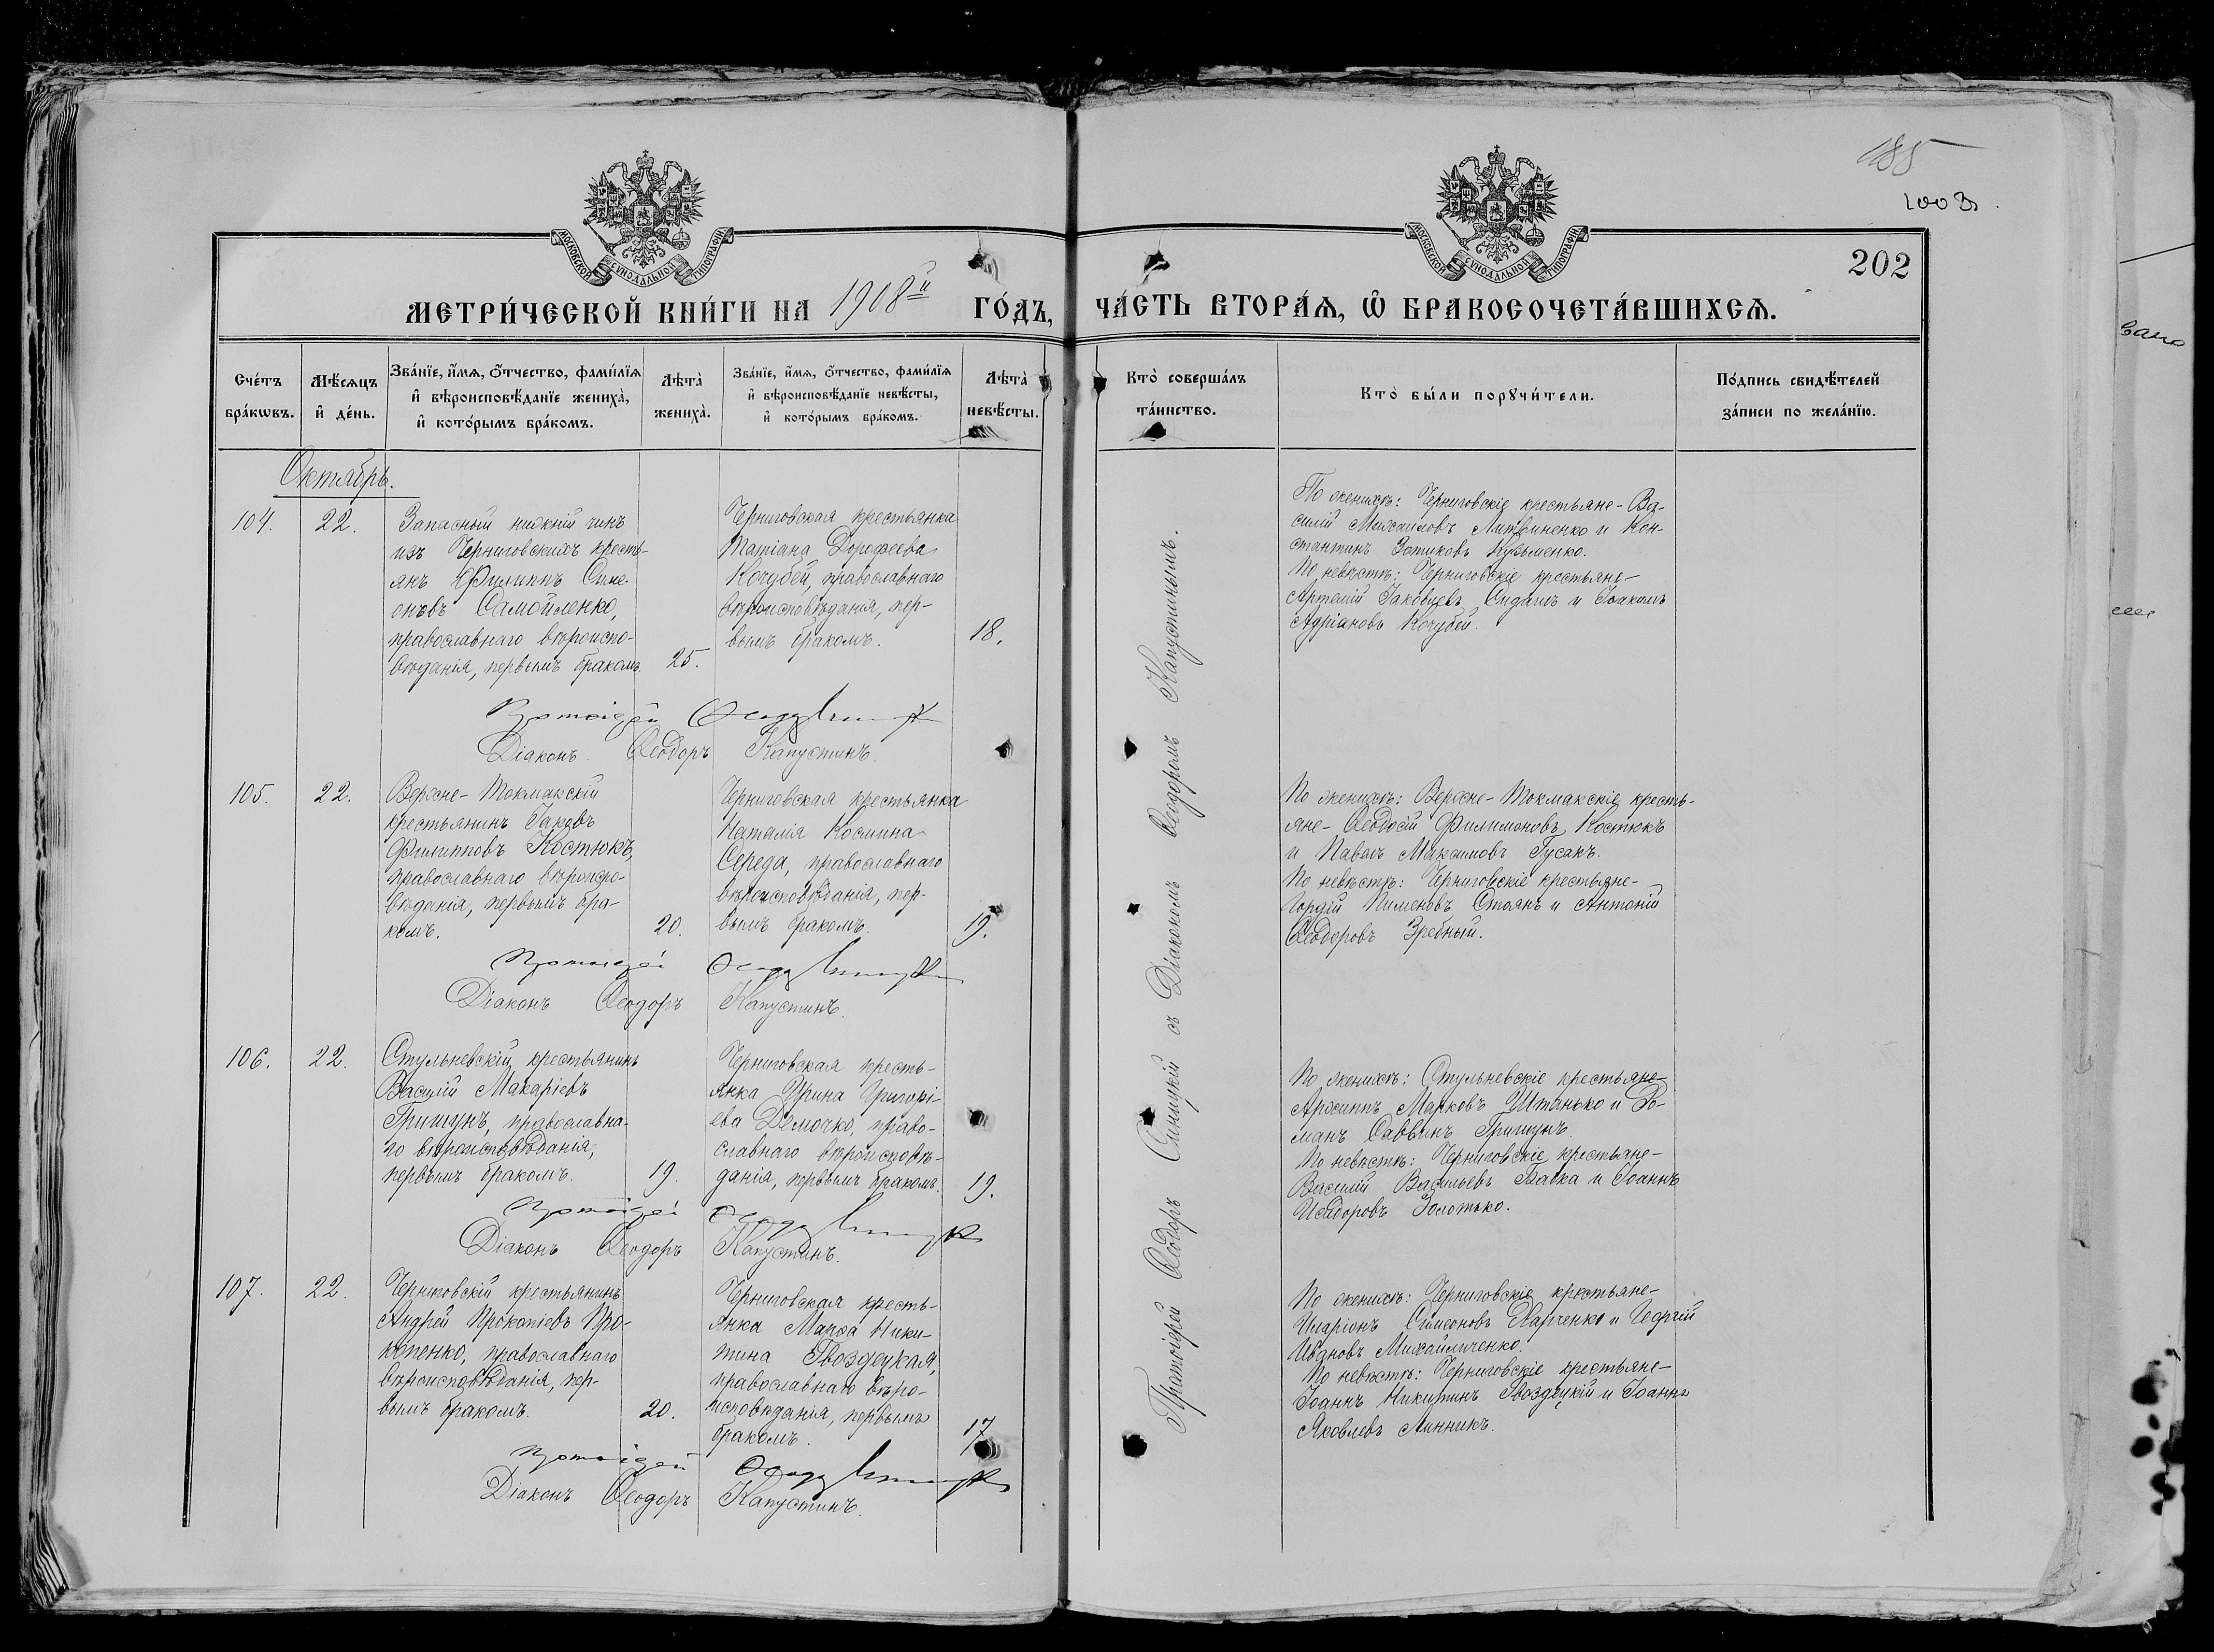 185
1003.
202
МОСКОВСКОЙ СѴНОДАЛЬНОЙ ТИПОГРАФІИ
МОСКОВСКОЙ СѴНОДАЛЬНОЙ ТИПОГРАФІИ
МЕТРИ́ЧЕСКОЙ КНИ́ГИ НА 1908й ГО́ДЪ, ЧА́СТЬ ВТОРА́Ѧ, Ѽ БРАКОСОЧЕТА́ВШИХСѦ.
Сче́тъ
бра́кѡвъ.
Мѣ́сѧцъ
и҆ де́нь.
Зва́нїе, и҆́мѧ, ѻ҆́тчество, фами́лїѧ
и҆ вѣроисповѣ́данїе жениха̀,
и҆ кото́рымъ бра́комъ.
Лѣта̀
жениха̀.
Зва́нїе, и҆́мѧ, ѻ҆́тчество, фами́лїѧ
и҆ вѣроисповѣ́данїе невѣ́сты,
и҆ кото́рымъ бра́комъ.
Лѣта̀
невѣ́сты.
Кто̀ соверша́лъ
та́инство.
Кто̀ бы́ли порꙋчи́тели.
По́дпись свидѣ́телей
за́писи по жела́нїю.
Октябрь.
104.
22.
Запасный нижній чинъ
изъ Черниговскихъ кресть-
янъ Филиппъ Симе-
оновъ Самойленко,
православнаго вѣроиспо-
вѣданія, первымъ бракомъ.
25.
Черниговская крестьянка
Татіана Дорофеева
Кочубей, православнаго
вѣроисповѣданія, пер-
вымъ бракомъ.
18.
По женихѣ: Черниговскіе крестьяне - Ва-
силій Михаиловъ Литвиненко и Кон-
стантинъ Зотиковъ Кузьменко.
По невѣстѣ: Черниговскіе крестьяне -
Артемій Іаковлевъ Сидашъ и Іоакимъ
Адріановъ Кочубей.
Протоіерей Ѳеодоръ Синицкій
Діаконъ Ѳеодоръ Капустинъ.
105.
22.
Верхне-Токмакскій
крестьянинъ Іаковъ
Филипповъ Костюкъ,
православнаго вѣроиспо-
вѣданія, первымъ бра-
комъ.
20.
Черниговская крестьянка
Наталія Космина
Середа, православнаго
вѣроисповѣданія, пер-
вымъ бракомъ.
19.
По женихѣ: Верхне-Токмакскіе кресть-
яне - Ѳеодосій Филимоновъ Костюкъ
и Павелъ Максимовъ Гусакъ.
По невѣстѣ: Черниговскіе крестьяне -
Гордій Пименовъ Стоянъ и Антоній
Ѳеодоровъ Зребный.
Протоіерей Ѳеодоръ Синицкій
Діаконъ Ѳеодоръ Капустинъ.
106.
22.
Стульневскій крестьянинъ
Василій Макаріевъ
Гришунъ, православна-
го вѣроисповѣданія,
первымъ бракомъ.
19.
Черниговская кресть-
янка Ирина Григорі-
ева Демочко, право-
славнаго вѣроисповѣ-
данія, первымъ бракомъ.
19.
По женихѣ: Стульневскіе крестьяне -
Архиппъ Марковъ Штанько и Ро-
манъ Саввинъ Гришунъ.
По невѣстѣ: Черниговскіе крестьяне -
Василій Васильевъ Бабка и Іоаннъ
Исидоровъ Золотько.
Протоіерей Ѳеодоръ Синицкій
Діаконъ Ѳеодоръ Капустинъ.
107.
22.
Черниговскій крестьянинъ
Андрей Прокопіевъ Про-
копенко, православнаго
вѣроисповѣданія, пер-
вымъ бракомъ.
20.
Черниговская кресть-
янка Марѳа Ники-
тина Гвоздецкая,
православнаго вѣро-
исповѣданія, первымъ
бракомъ.
17
По женихѣ: Черниговскіе крестьяне -
Иларіонъ Симеоновъ Харченко и Георгій
Ивановъ Михайличенко.
По невѣстѣ: Черниговскіе крестьяне -
Іоаннъ Никитинъ Гвоздецкій и Іоаннъ
Яковлевъ Линникъ.
Протоіерей Ѳеодоръ Синицкій
Діаконъ Ѳеодоръ Капустинъ.
Протоіерей Ѳеодоръ Синицкій съ Діакономъ Ѳеодоромъ Капустинымъ.